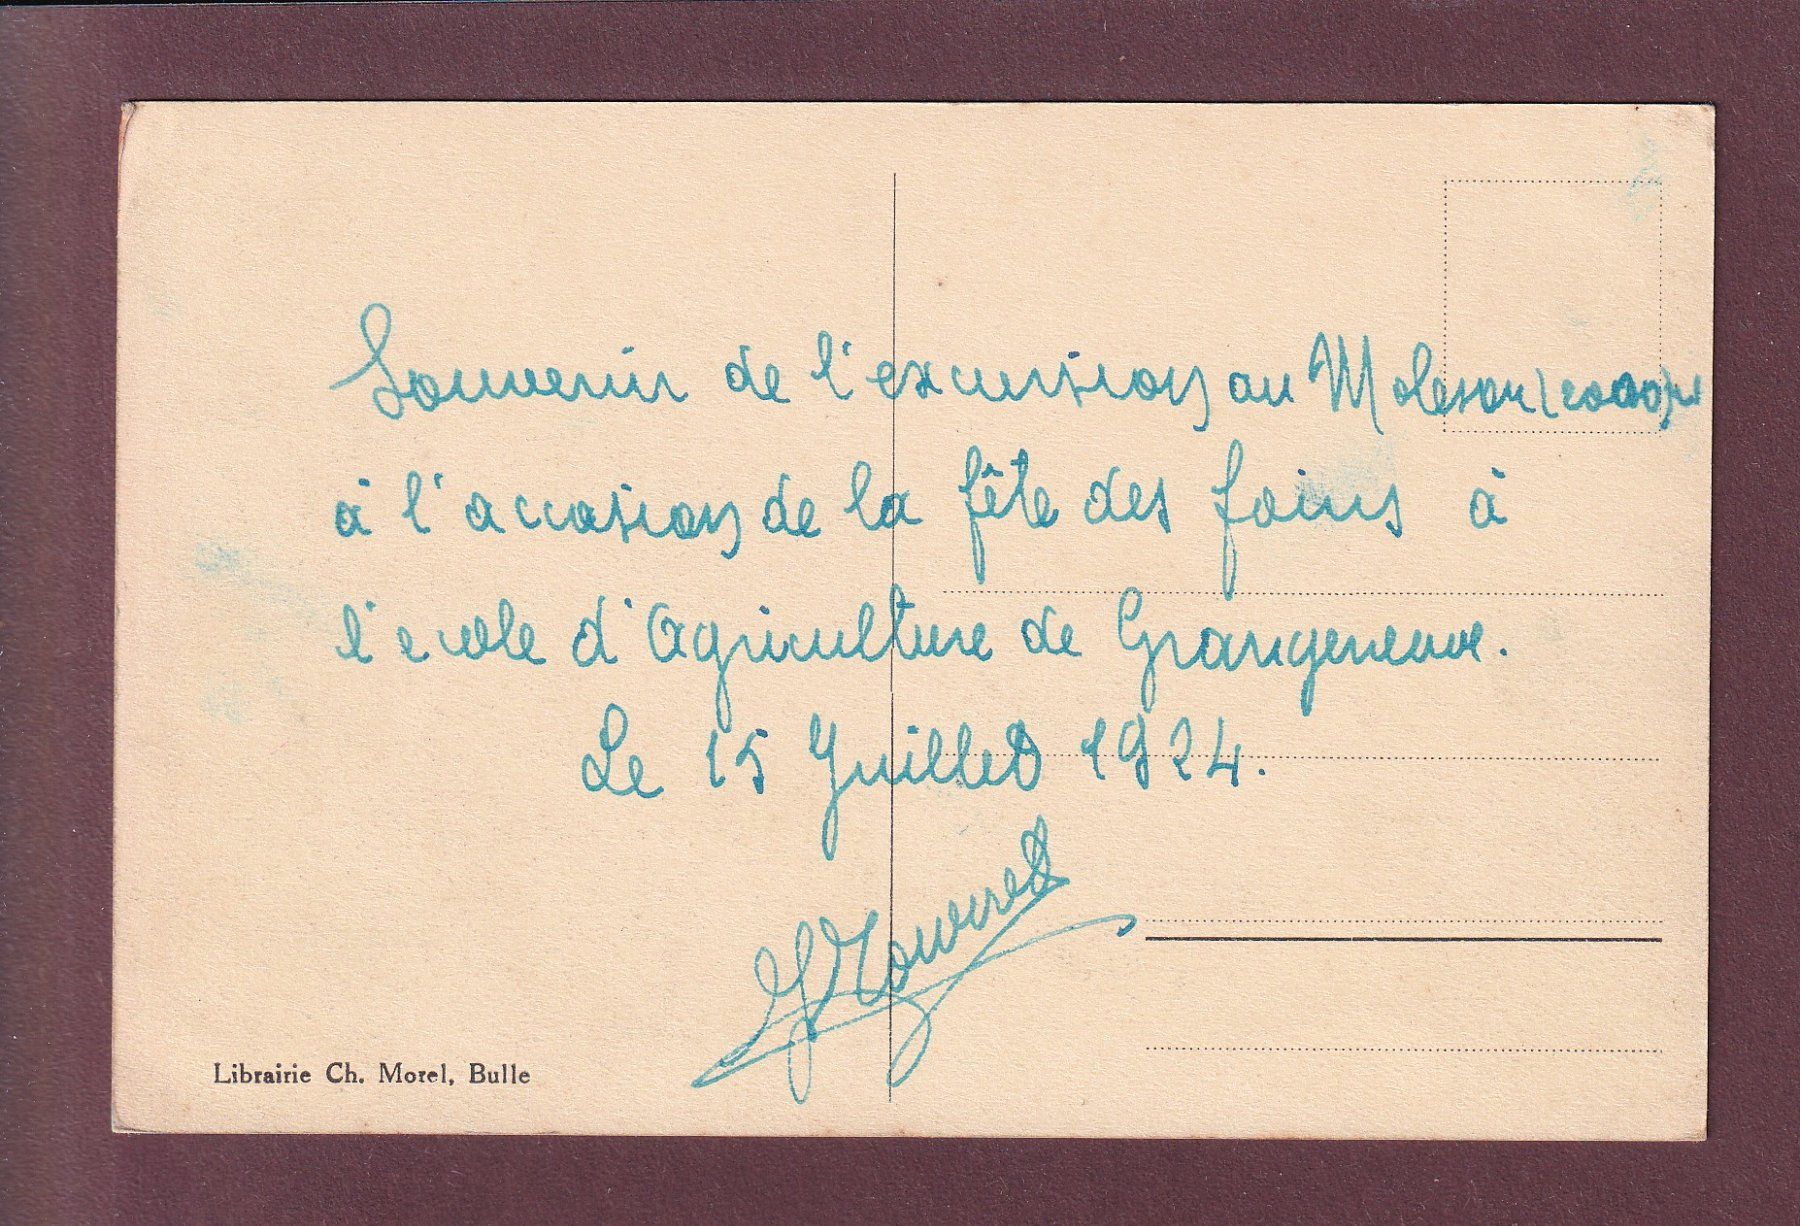 Souvenir de l'excursion au Moleson (2000)m
à l'occasion de la fête des foins à
l'ecole d'Agriculture de Grangeneuve.
Le 15 Juillet 1924.
Librairie Ch. Morel, Bulle